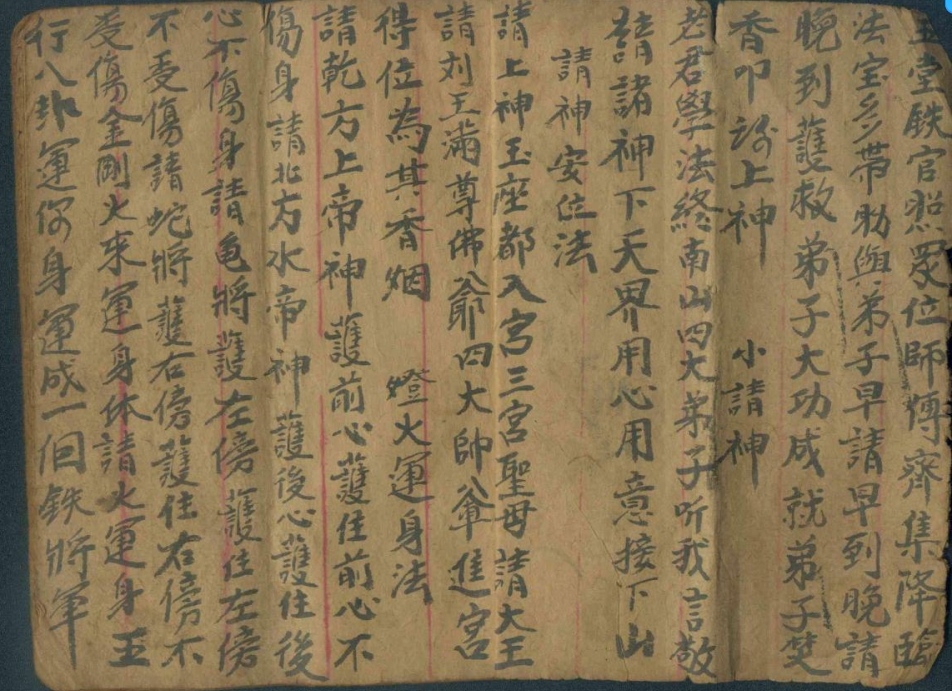 玉堂鉄官照眾位師傅齊集降臨
法宝多带助與弟子早請早到晚請
晚到護救弟子大功成就弟子焚
香叩 上神 小請神
老君學法終南山四大弟子听我言敬
請諸神下天界用心用意接下山
請神安位法
請上神玉座都入宮三宮聖母請大王
請刘王滿尊佛爺四大帥爺進宮
得位為其香烟 燈火運身法
請乾方上帝神護前心護住前心不
傷身請北方水帝神護後心護住後
心不傷身請亀將護左傍護住左傍
不受傷請蛇將護右傍護住右傍不
受傷金剛火來運身体請火運身五
行八卦運你身運成一個鉄將軍